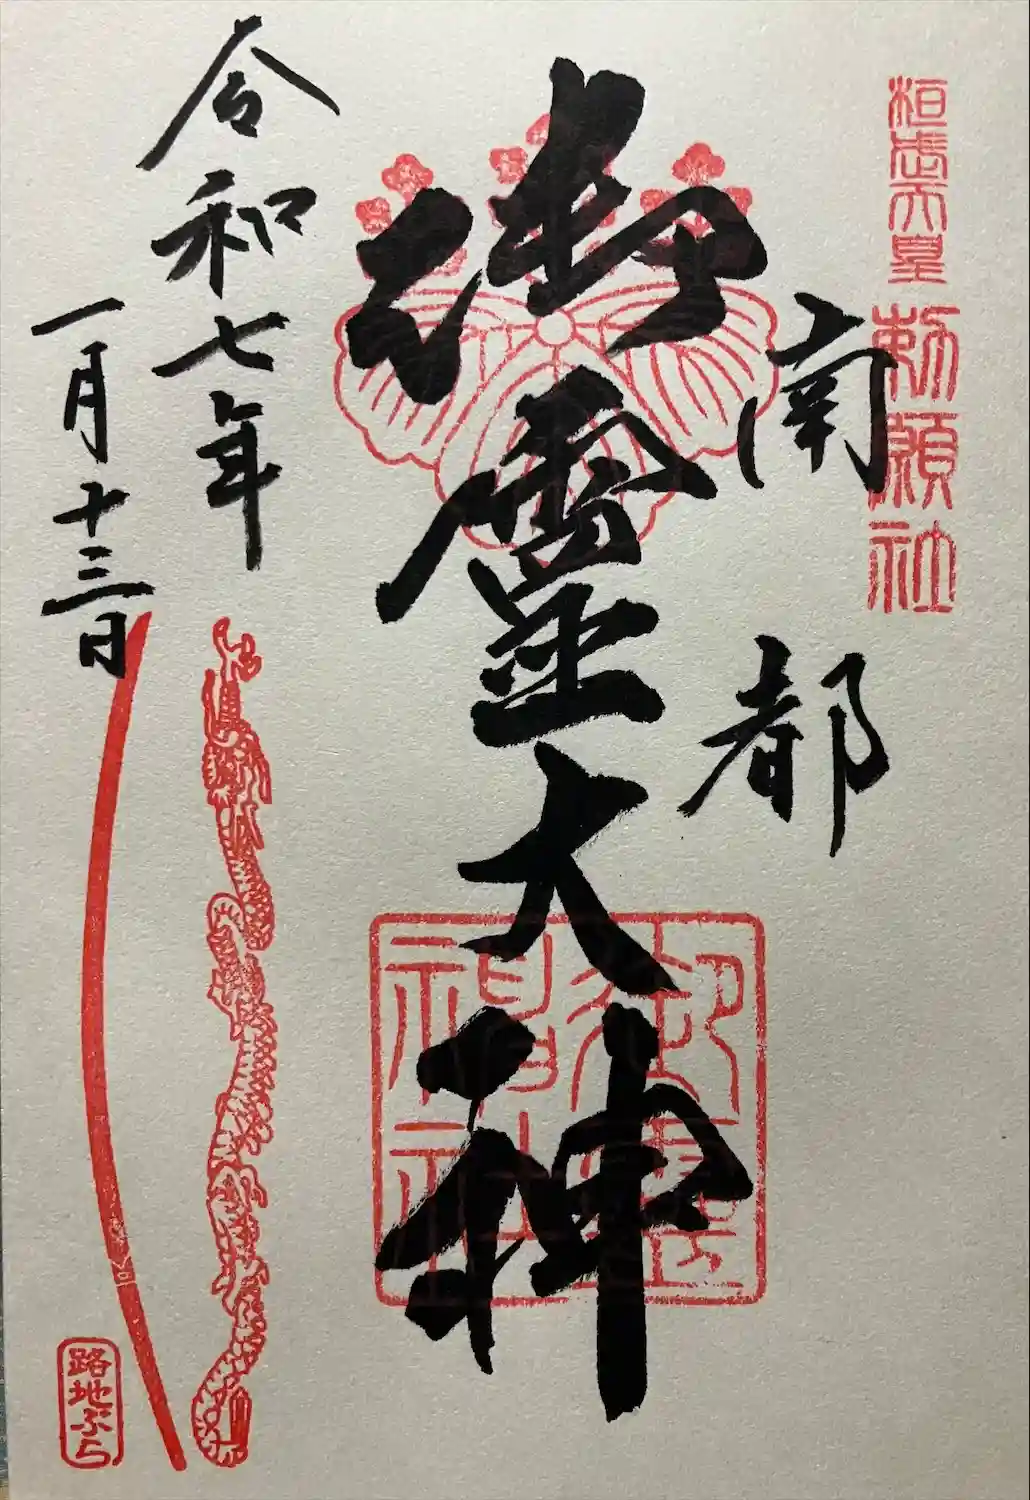 桓武天皇
勅願社
南都
御靈大神
御霊神社
令和七年
一月十三日
路地ぶら